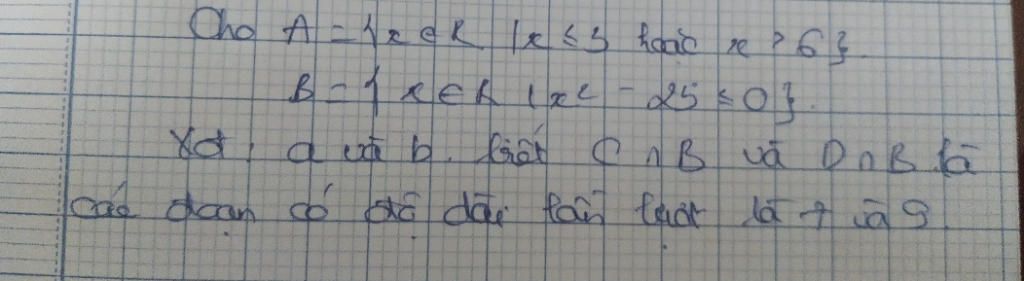 Cho A = { x ∈ R | x ≤ 3 hoặc x > 6 }.
B = { x ∈ R | x² - 25 ≤ 0 }.
Xđ a và b. biết C ∩ B và D ∩ B là
các đoạn có độ dài lần lượt là 7 và 9.